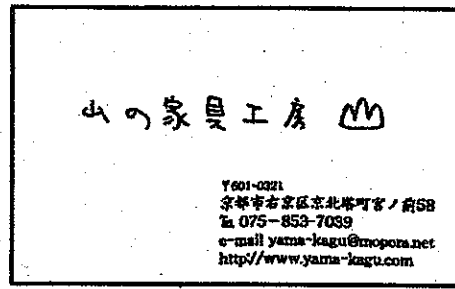 山の家具工房
〒601-0321
京都市右京区京北塔町宮ノ前58
℡ 075-853-7039
e-mail yama-kagu@mopora.net
http://www.yama-kagu.com